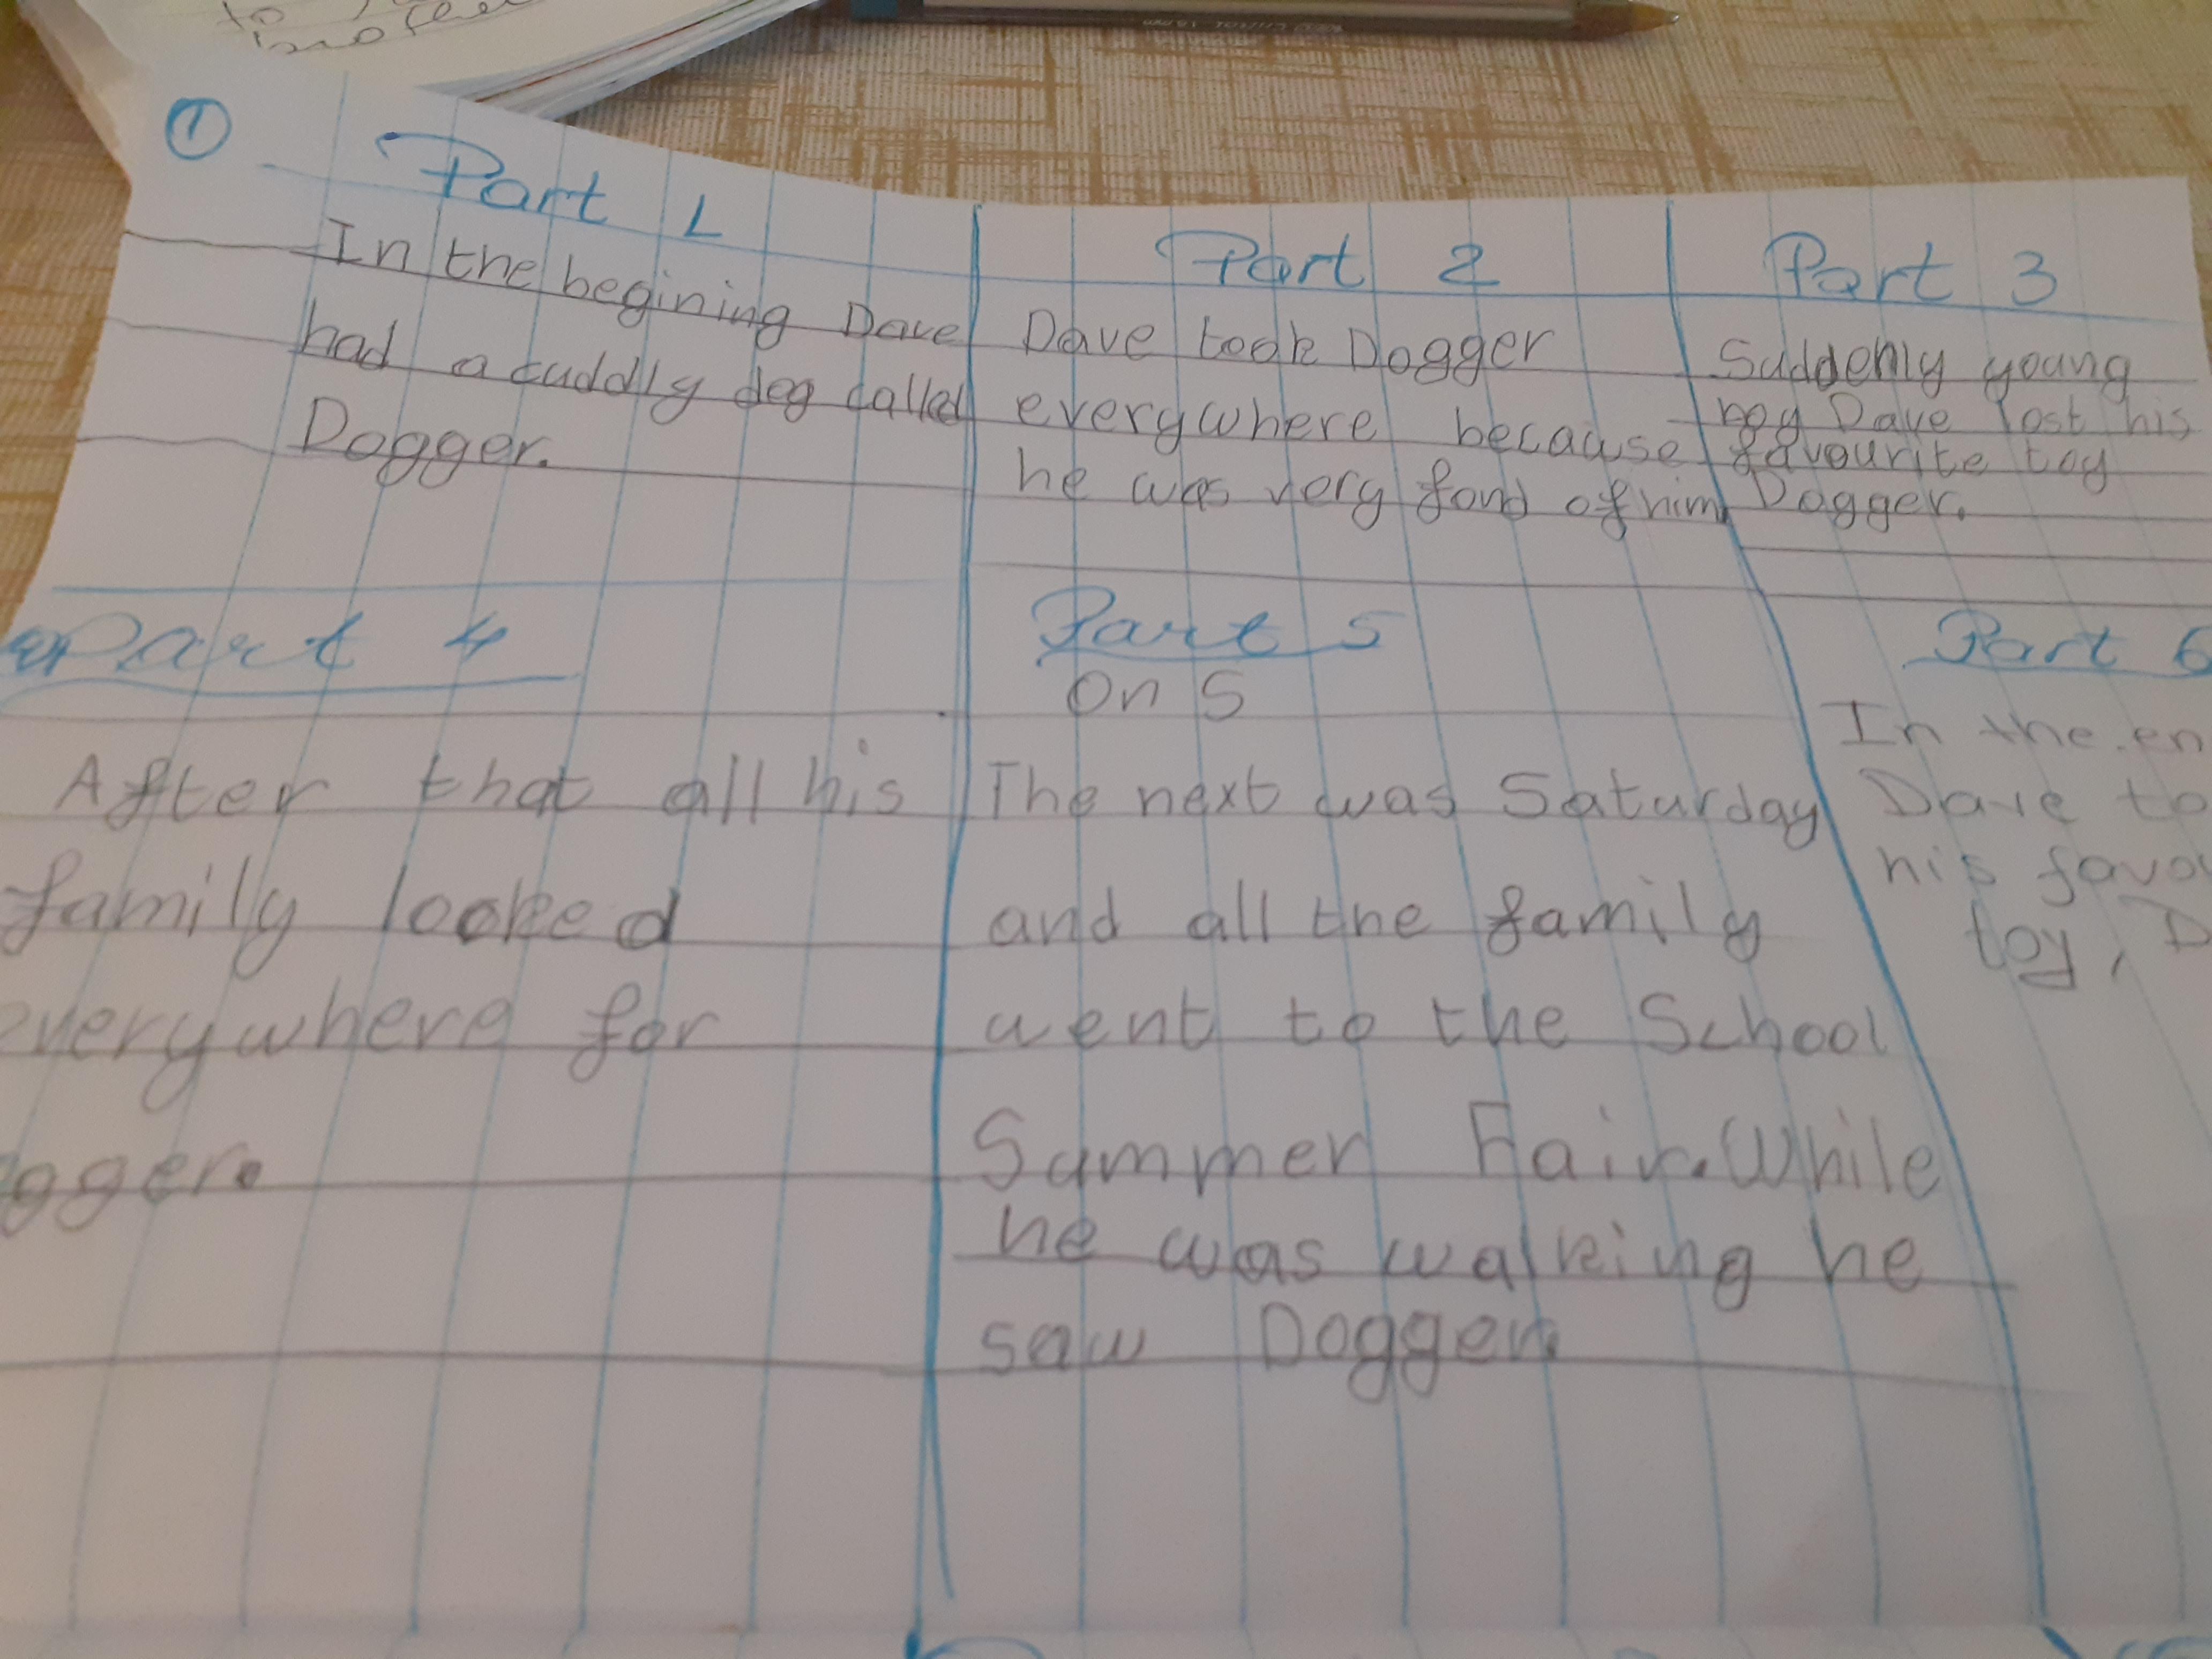 to
①
Part 1
In the begining Dave
had a cuddly dog called
Dogger.
Part 2
Dave took Dogger
everywhere because
he was very fond of him
Part 3
Suddenly young
boy Dave lost his
favourite toy
Dogger.
Part 4
After that all his
family looked
everywhere for
ogger.
Part 5
On S
The next was Saturday
and all the family
went to the School
Summer Fair. While
he was walking he
saw Dogger.
Part 6
In the en
Dave to
his favo
toy, D